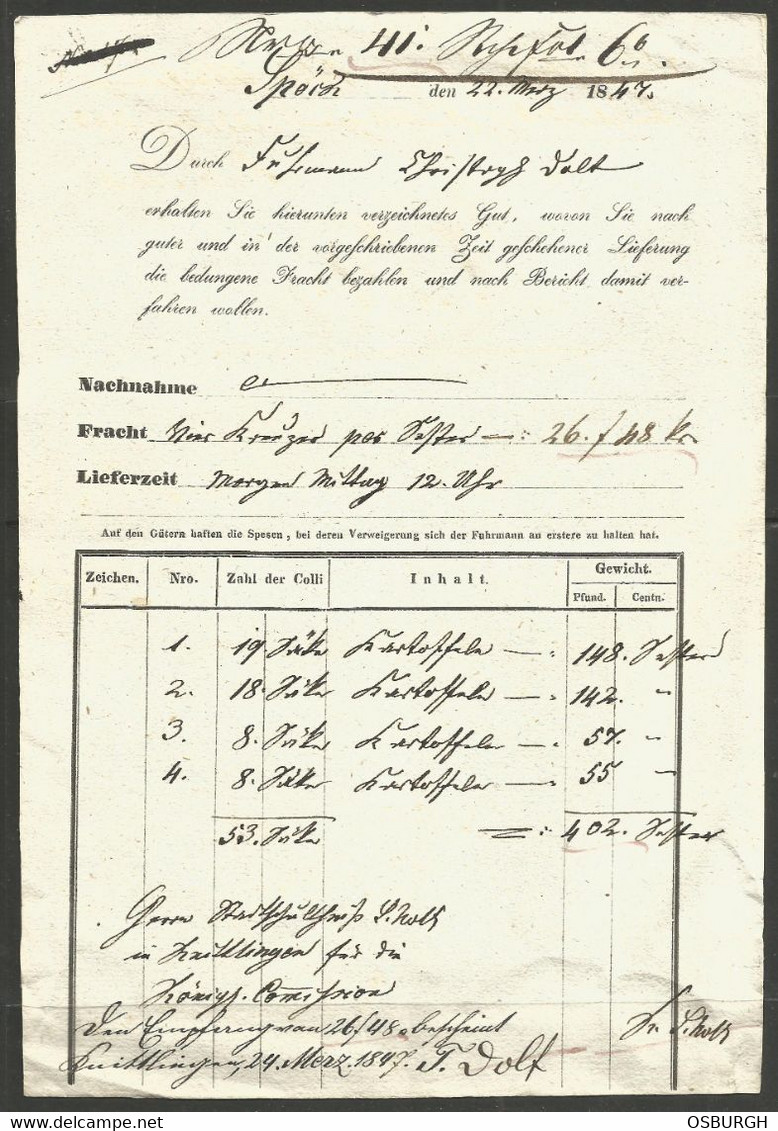 41. 6
Spöck den 22. Merz 1847.
Durch Fuhrmann Christoph Dolt
erhalten Sie hierunten verzeichnetes Gut, wovon Sie nach
guter und in der vorgeschriebenen Zeit geschehener Lieferung
die bedungene Fracht bezahlen und nach Bericht damit ver-
fahren wollen.
Nachnahme
Fracht Vier Kreuzer per Sester —: 26. f 48 kr
Lieferzeit Morgen Mittag 12. Uhr
Auf den Gütern haften die Spesen, bei deren Verweigerung sich der Fuhrmann an erstere zu halten hat.
Zeichen. Nro. Zahl der Colli Inhalt. Gewicht.
Pfund. Centn.
1. 19 Säke Kartoffeln —: 148. Sester
2. 18. Säke Kartoffeln —: 142. "
3. 8. Säke Kartoffeln —. 57. "
4. 8. Säke Kartoffeln —: 55 "
53. Säke =: 402. Sester
Herrn Stadtschultheiß
in Knittlingen für die
Königl. Comission
Den Empfang von 26 f 48 bescheint
Knittlingen, 24. Merz. 1847. T. Dolt
delcampe.net
OSBURGH